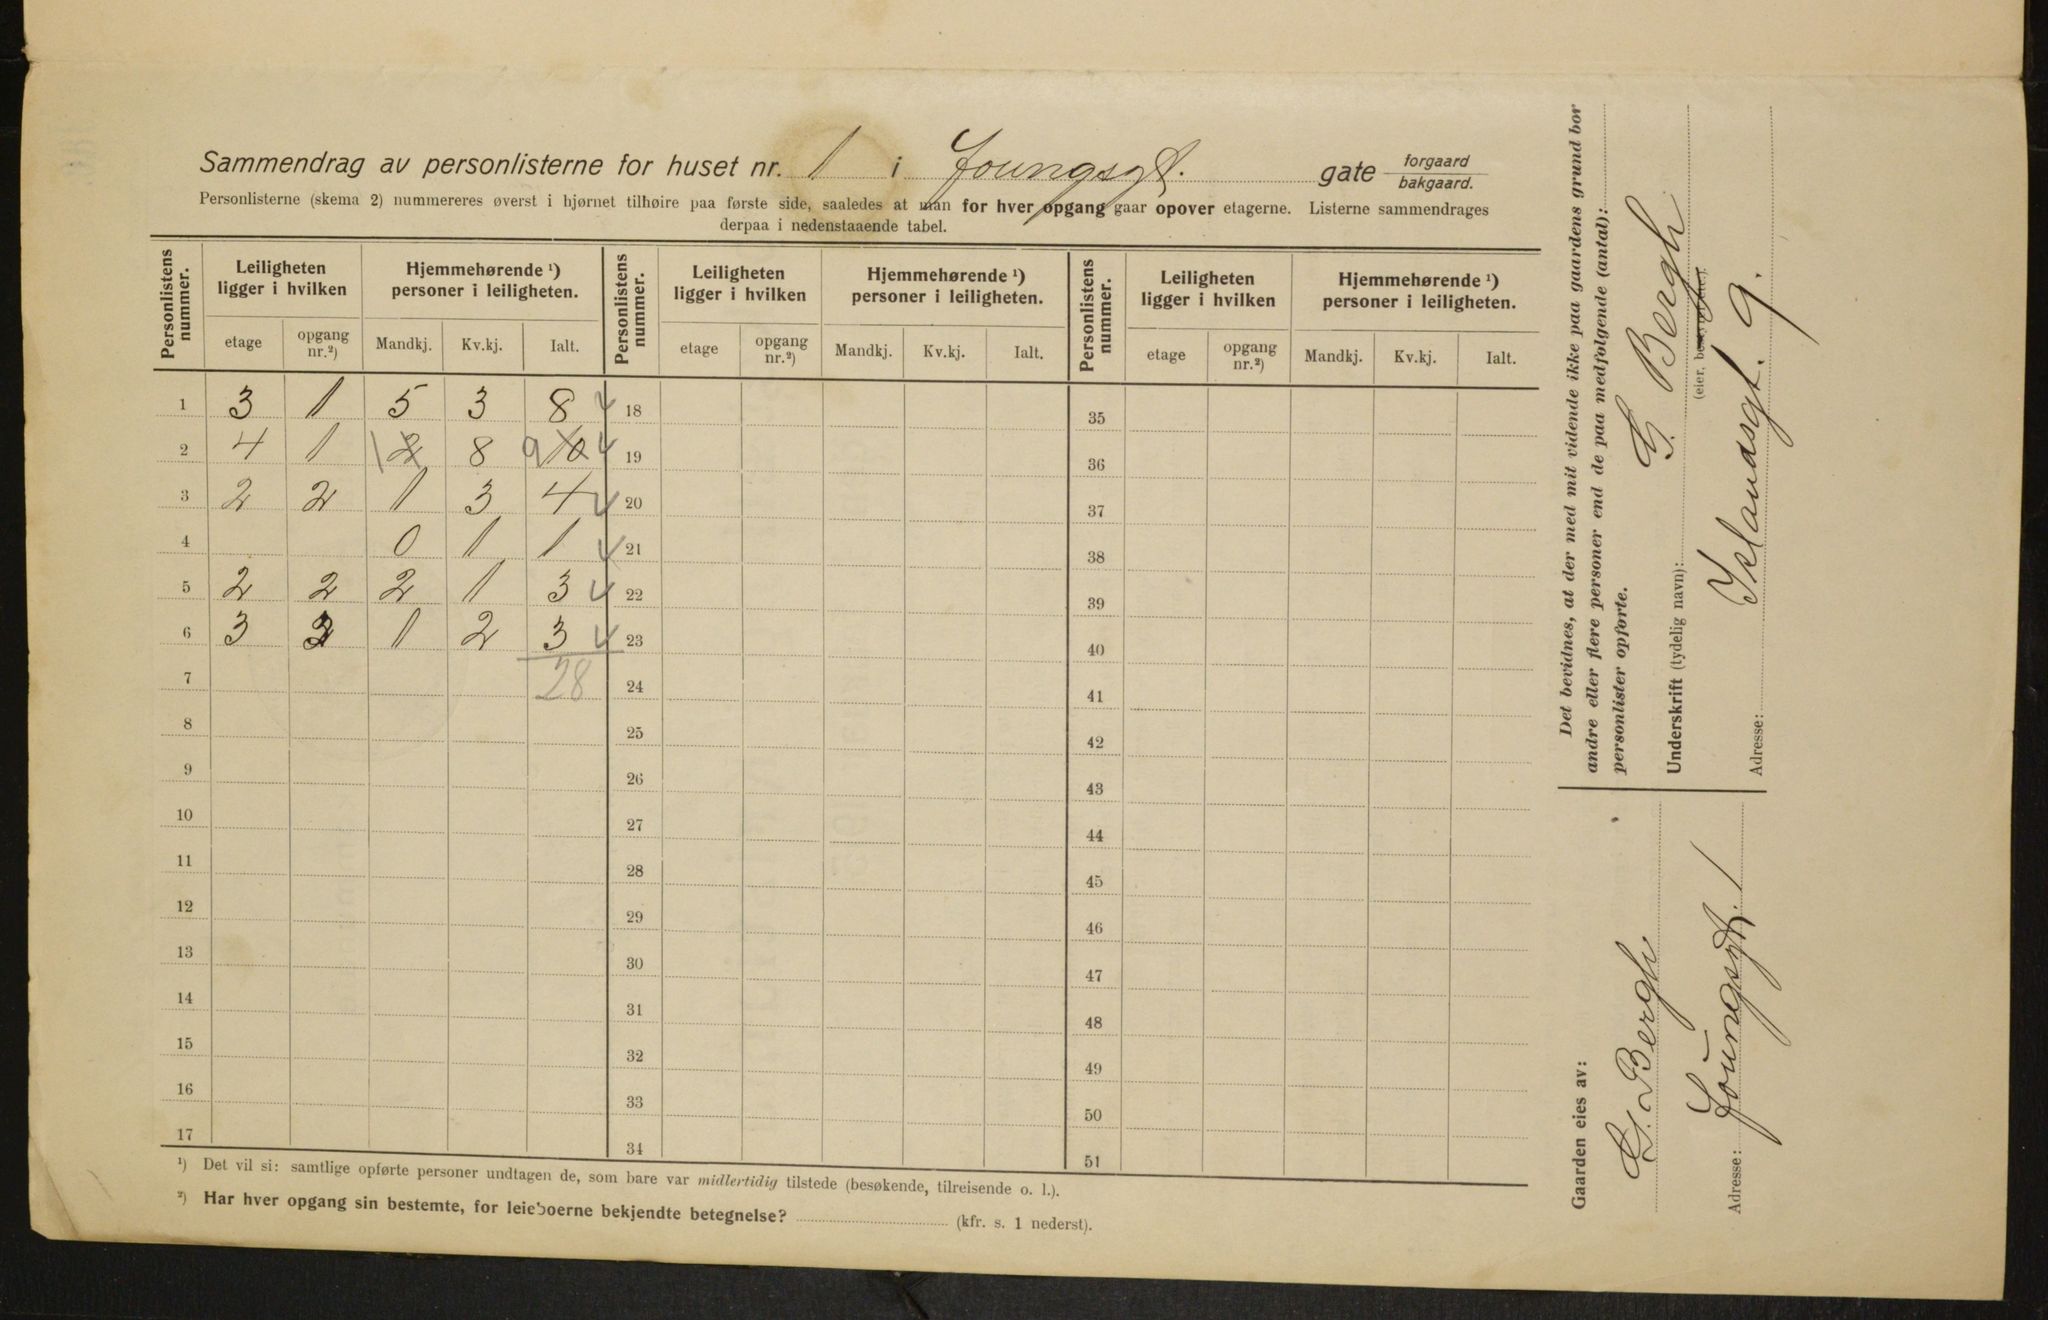 Sammendrag av personlisterne for huset nr. 1 i Youngsgt. gate forgaard / bakgaard.
Personlisterne (skema 2) nummereres øverst i hjørnet tilhøire paa første side, saaledes at man for hver opgang gaar opover etagerne. Listerne sammendrages
derpaa i nedenstaaende tabel.
Personlistens nummer. Leiligheten ligger i hvilken Hjemmehørende ¹) personer i leiligheten. Personlistens nummer. Leiligheten ligger i hvilken Hjemmehørende ¹) personer i leiligheten. Personlistens nummer. Leiligheten ligger i hvilken Hjemmehørende ¹) personer i leiligheten.
etage opgang nr.²) Mandkj. Kv.kj. Ialt. etage opgang nr.²) Mandkj. Kv.kj. Ialt. etage opgang nr.²) Mandkj. Kv.kj. Ialt.
1 3 1 5 3 8 18 35
2 4 1 1 2 8 9 10 19 36
3 2 2 1 3 4 20 37
4 0 1 1 21 38
5 2 2 2 1 3 22 39
6 3 3 1 2 3 23 40
7 28 24 41
8 25 42
9 26 43
10 27 44
11 28 45
12 29 46
13 30 47
14 31 48
15 32 49
16 33 50
17 34 51
¹) Det vil si: samtlige opførte personer undtagen de, som bare var midlertidig tilstede (besøkende, tilreisende o. l.).
²) Har hver opgang sin bestemte, for leieboerne bekjendte betegnelse? (kfr. s. 1 nederst).
Det bevidnes, at der med mit vidende ikke paa gaardens grund bor
andre eller flere personer end de paa medfølgende (antal):
personlister opførte.
G. Bergh
Underskrift (tydelig navn):
(eier, bestyrer eller)
Adresse: 9.
Gaarden eies av:
G. Bergh
Adresse: Youngsgt. 1